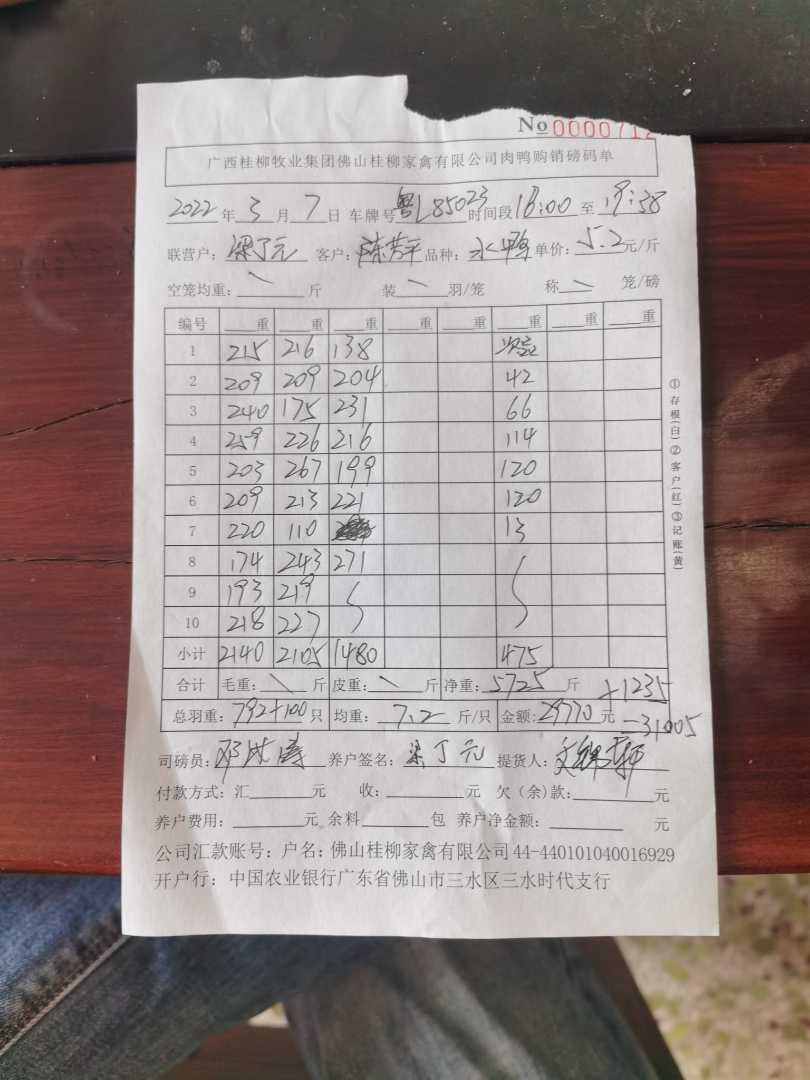 No 0000712
广西桂柳牧业集团佛山桂柳家禽有限公司肉鸭购销磅码单
2022年3月7日 车牌号粤L85023时间段18:00至19:38
联营户：梁了元 客户：陈芳平 品种：水鸭 单价：5.2元/斤
空笼均重：\斤 装\羽/笼 称\笼/磅
编号 重 重 重 重 重 重 重 重
1 215 216 138
2 209 209 204 42
3 240 175 231 66
4 259 226 216 114
5 203 267 199 120
6 209 213 221 120
7 220 110 13
8 174 243 271
9 193 219
10 218 227
小计 2140 2105 1480 475
合计 毛重：\斤 皮重：\斤 净重：5725斤 +1235
总羽重：792+100只 均重：7.2斤/只 金额：29770元 -31005
司磅员： 养户签名：梁了元 提货人：
付款方式：汇 元 收： 元 欠（余）款： 元
养户费用： 元 余料 包 养户净金额： 元
公司汇款账号：户名：佛山桂柳家禽有限公司44-440101040016929
开户行：中国农业银行广东省佛山市三水区三水时代支行
①存根(白)②客户(红)③记账(黄)